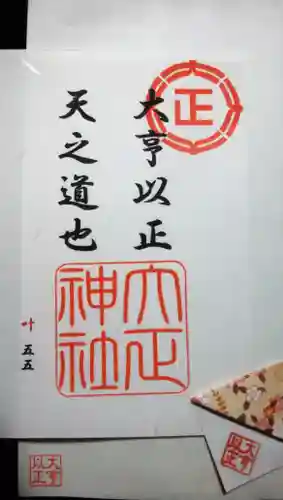 正
大亨以正
天之道也
大正
神社
叶
五五
大亨
以正
大亨
以正